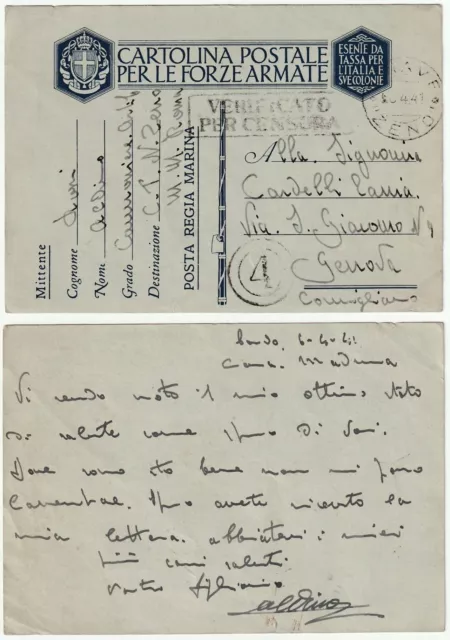 CARTOLINA POSTALE
PER LE FORZE ARMATE
ESENTE DA
TASSA PER
L'ITALIA E
SVE COLONIE
VERIFICATO
PER CENSURA
NAVE
ZENO
Mittente
Cognome
Nome Aldino
Grado Cannoniere
Destinazione C.T. N. Zeno
POSTA REGIA MARINA
Alla Signorina
Cardelli Tania
Via S. Giacomo N 9
Genova
Cornigliano
4
Bordo, 6-4-41
Cara Mamma
Vi rendo noto il mio ottimo stato
di salute come spero di Voi.
Dove sono sto bene non mi posso
lamentare. Spero avete ricevuto la
mia lettera. abbiatevi i miei
più cari saluti
vostro figlio
Aldino